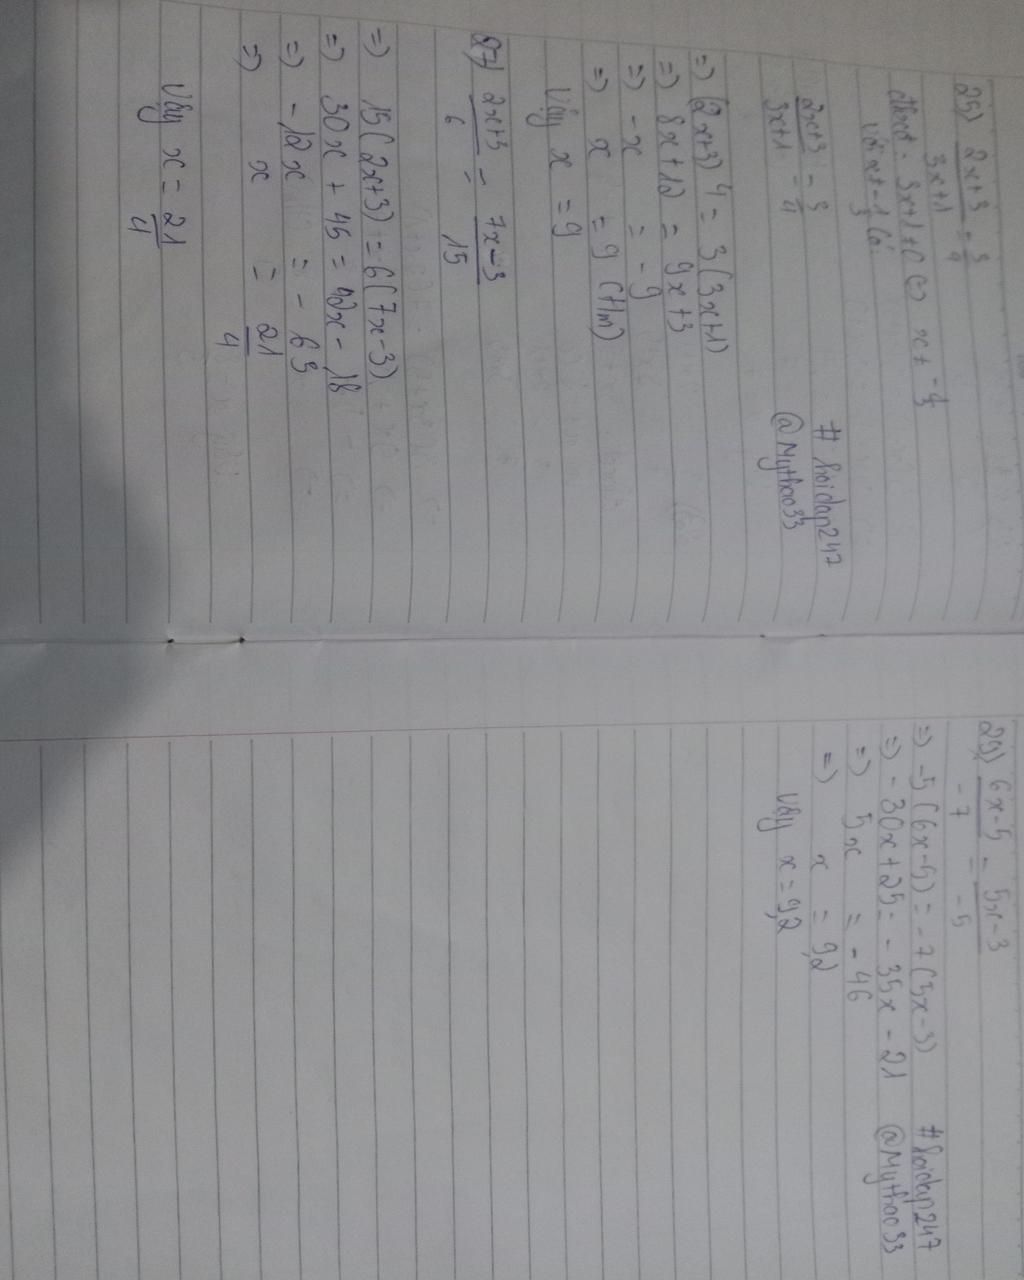 25) 2x+3 / 3x+1 = 3/4
đkxđ: 3x+1≠0 (=) x ≠ -1/3
với x≠ -1/3 Có:
2x+3 / 3x+1 = 3/4
=) (2x+3) 4 = 3 (3x+1)
=) 8x+12 = 9x+3
=) -x = -9
=) x = 9 (t/m)
Vậy x = 9
#hoidap247
@Mythao33
27) 2x+3 / 6 = 7x-3 / 15
=) 15(2x+3) = 6(7x-3)
=) 30x + 45 = 42x - 18
=) -12x = -63
=) x = 21/4
Vậy x = 21/4
29) 6x-5 / -7 = 5x-3 / -5
=) -5(6x-5) = -7(5x-3)
=) -30x+25 = -35x-21
=) 5x = -46
=) x = 9,2
Vậy x = 9,2
#hoidap247
@Mythao33